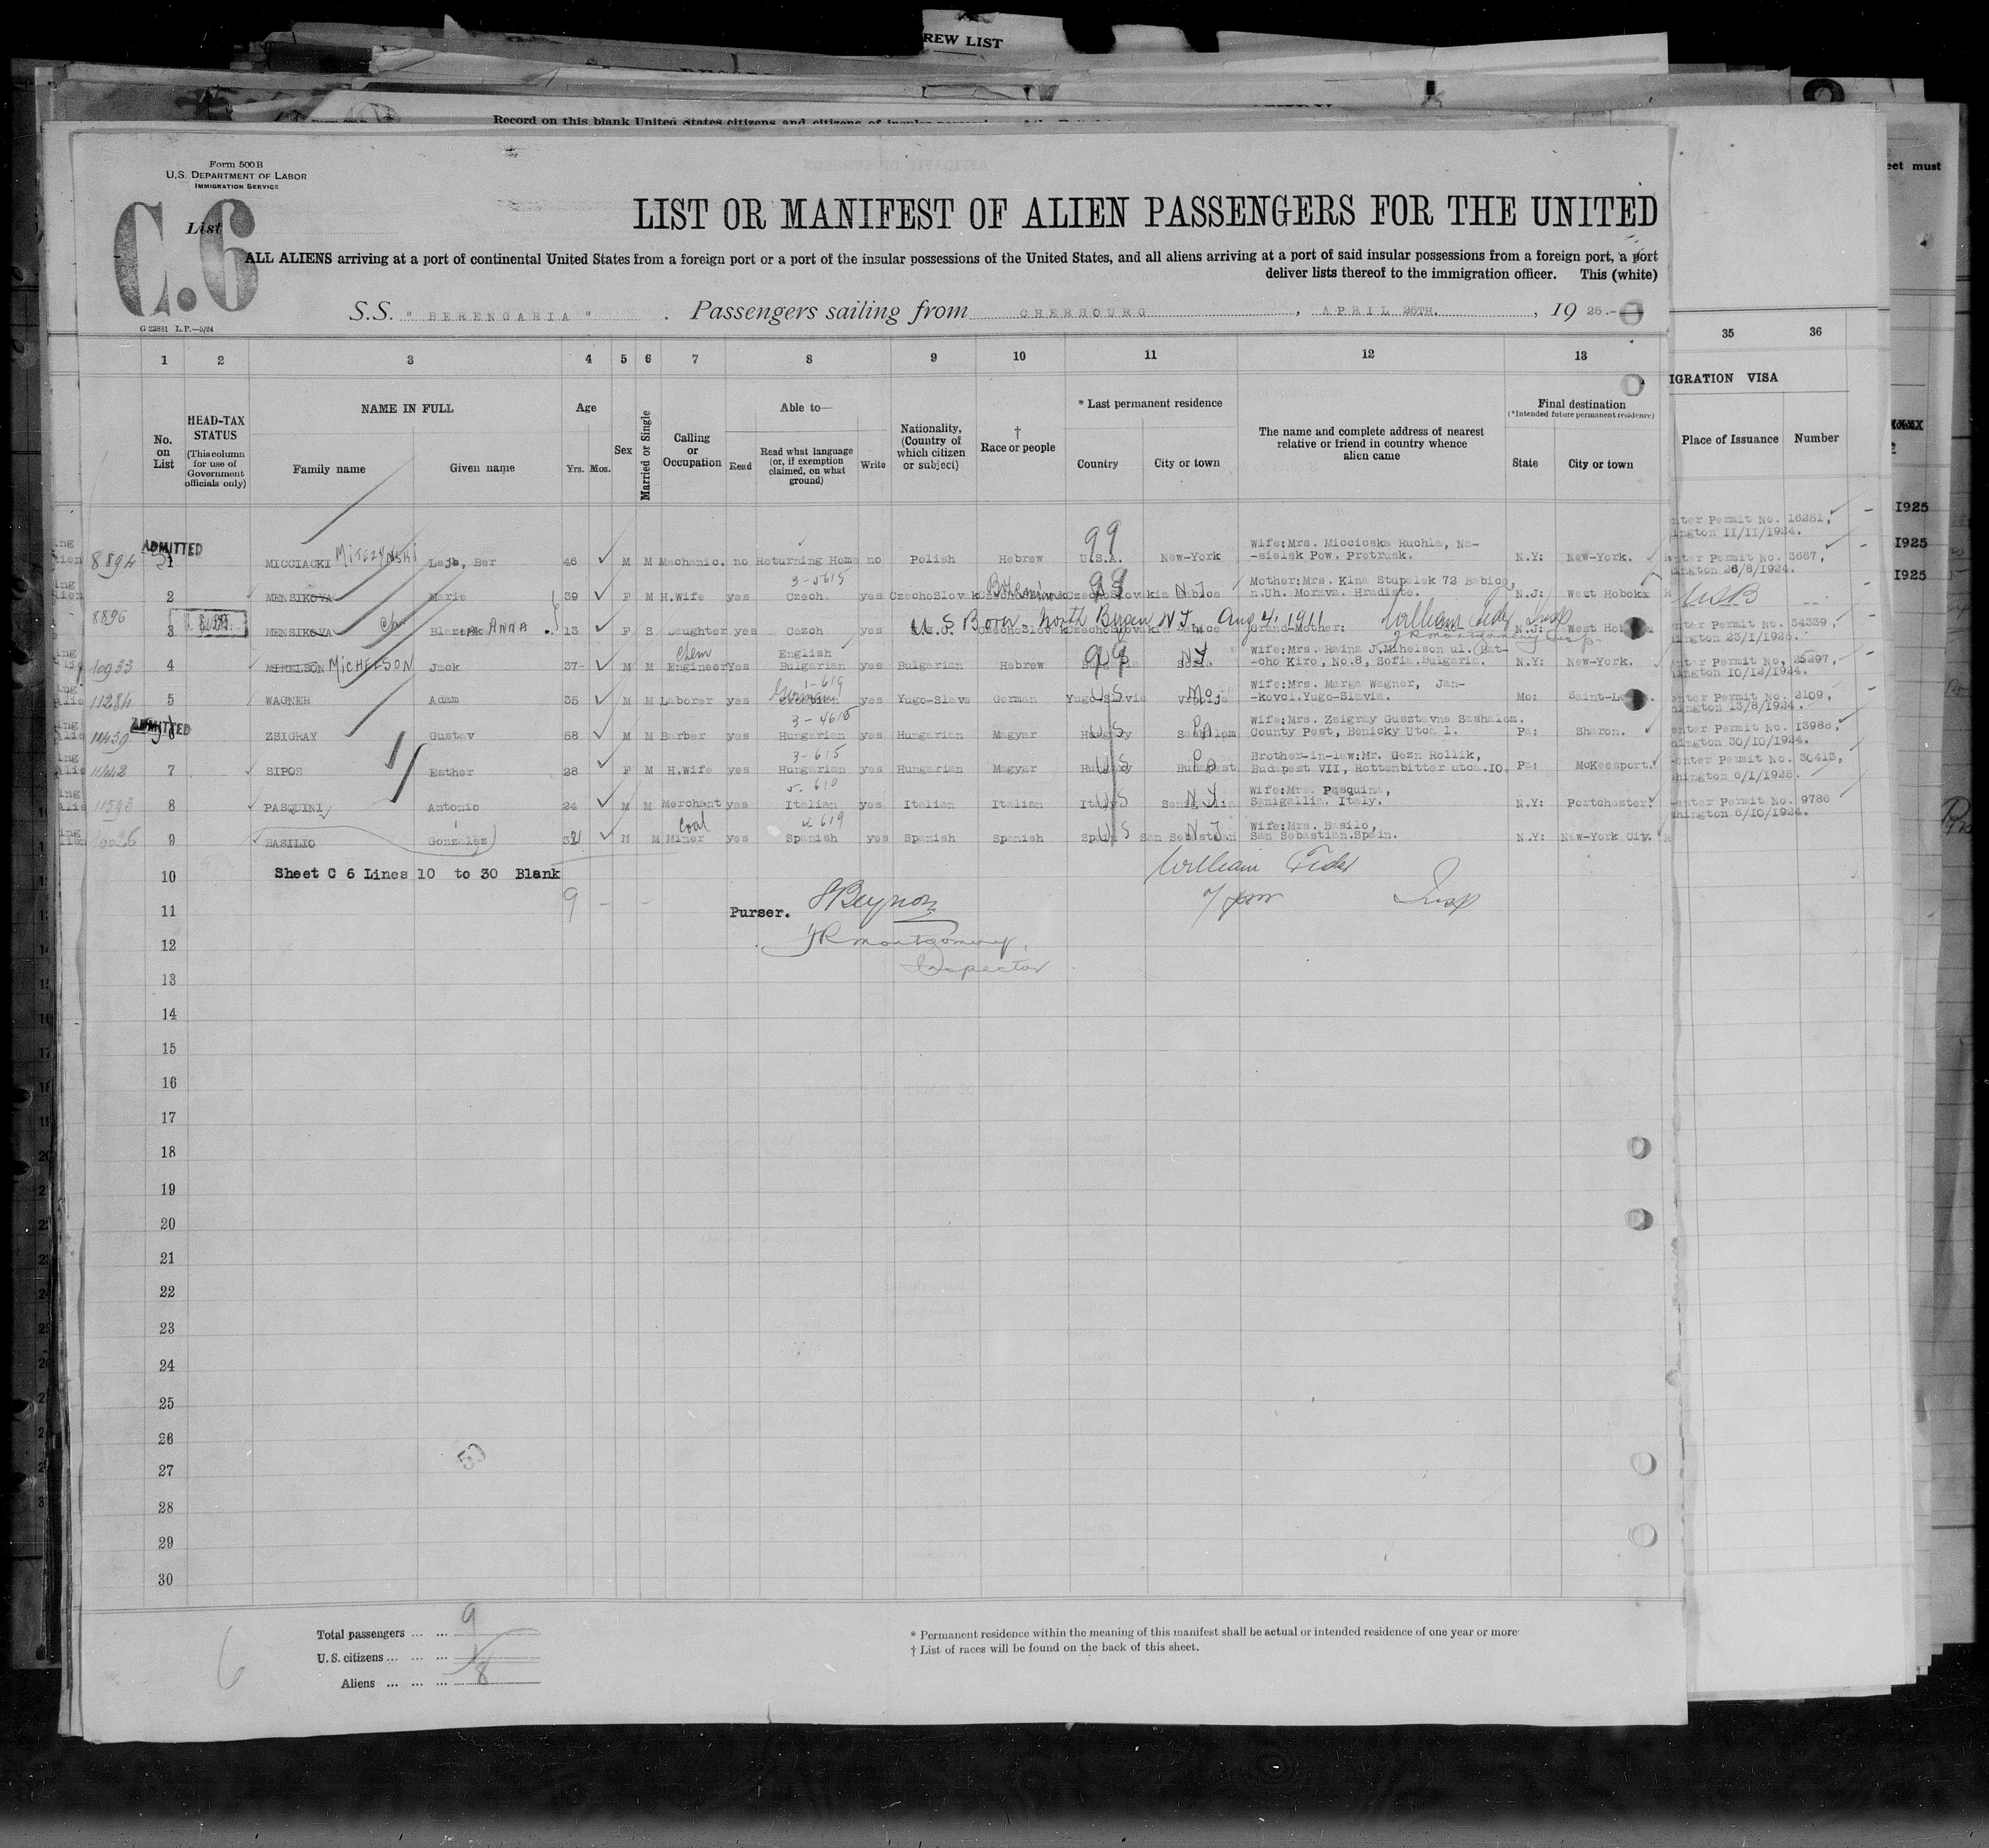 REW LIST
Record on this blank United States citizens and citizens of insular
eet must
Form 500 B
U.S. DEPARTMENT OF LABOR
IMMIGRATION SERVICE
C.6
List
LIST OR MANIFEST OF ALIEN PASSENGERS FOR THE UNITED
ALL ALIENS arriving at a port of continental United States from a foreign port or a port of the insular possessions of the United States, and all aliens arriving at a port of said insular possessions from a foreign port, a port
deliver lists thereof to the immigration officer. This (white)
S.S. " BERENGARIA " . Passengers sailing from CHERBOURG , APRIL 25TH. , 19 25.-
G 23881 L.P.—5/24
1 2 3 4 5 6 7 8 9 10 11 12 13 35 36
No. on List
HEAD-TAX STATUS (This column for use of Government officials only)
NAME IN FULL
Family name Given name
Age
Yrs. Mos.
Sex
Married or Single
Calling or Occupation
Able to—
Read Read what language (or, if exemption claimed, on what ground) Write
Nationality, (Country of which citizen or subject)
† Race or people
* Last permanent residence
Country City or town
The name and complete address of nearest relative or friend in country whence alien came
Final destination
(*Intended future permanent residence)
State City or town
IGRATION VISA
Place of Issuance Number
99 Wife:Mrs. Miccioska Ruchla, Na- nter Permit No. 16251, 1925
8894 ADMITTED 1 MICCIACKI MITEZYNSKI Lejb, Ber 46 M M Mechanic. no Returning Home no Polish Hebrew U.S.A. New-York -sielsk Pow. Pretrusk. N.Y: New-York. ington 11/11/1924.
3-5615 Mother:Mrs. Klna Stupalek 72 Babice, nter Permit No. 3667, 1925
2 MENSIKOVA Marie 39 F M H.Wife yes Czech. yes CzechoSlovak Bohemian CzechoSlovakia Babice N J n.Uh. Morava. Hradiste. N.J: West Hoboken ington 26/8/1924. 1925
8896 USB
3 MENSIKOVA Blazena ANNA 13 F S Daughter yes Czech yes U.S. Born North Bergen N J, Aug 4, 1911 Grand-Mother: William Feder Insp N.J: West Hob nter Permit No. 34339,
JR Montgomery Insp. ington 23/1/1925.
Chem English 99 Wife:Mrs. Raina J.Mihelson ul. (Bat- nter Permit No. 25297,
10933 4 MIHELSON MICHELSON Jack 37- M M Engineer Yes Bulgarian yes Bulgarian Hebrew Sofia. -oho Kiro, No.8, Sofia.Bulgaria. N.Y: New-York. ington 10/12/1924.
1-619 German Wife:Mrs. Marga Wagner, Jan- nter Permit No. 2109,
11284 5 WAGNER Adam 35 M M Laborer yes yes Yugo-Slave German Yugo-Slavia U S Mo -kovoi.Yugo-Slavia. Mo: Saint-Lo ington 13/8/1924.
ADMITTED 3-4615 Wife:Mrs. Zsigray Gusztavne Sashalom. enter Permit No. 13988,
11439 6 ZSIGRAY Gustav 58 M M Barber yes Hungarian yes Hungarian Magyar Hungary U S Sashalom PA County Pest, Benicky Utca 1. Pa: Sharon. ington 30/10/1924.
3-615 Brother-in-law:Mr. Gezn Rollik, enter Permit No. 30413,
11442 7 SIPOS Esther 28 F M H.Wife yes Hungarian yes Hungarian Magyar Hungary U S Budapest Pa Budapest VII, Rottenbitter utca.10. Pa: McKeesport. hington 6/1/1925.
5-610 Wife:Mrs. Pasquina,
11593 8 PASQUINI Antonio 24 M M Merchant yes Italian yes Italian Italian Italy U S Senigallia N Y Senigallia. Italy. N.Y: Portchester. enter Permit No. 9786
coal 619 Wife:Mrs. Basilo, hington 6/10/1924.
9 BASILIO Gonzalez M M Miner yes Spanish yes Spanish Spanish Spain U S San Sebastian N Y San Sebastian.Spain. N.Y: New-York City.
10 Sheet C 6 Lines 10 to 30 Blank William Feder
9 - - Insp
11 Purser. SBeynon
12 JR Montgomery,
Inspector
13
14
15
16
17
18
19
20
21
22
23
24
25
26
50
27
28
29
30
6
Total passengers ... ... 9
U.S. citizens ... ... ... 1
Aliens ... ... ... 8
* Permanent residence within the meaning of this manifest shall be actual or intended residence of one year or more
† List of races will be found on the back of this sheet.